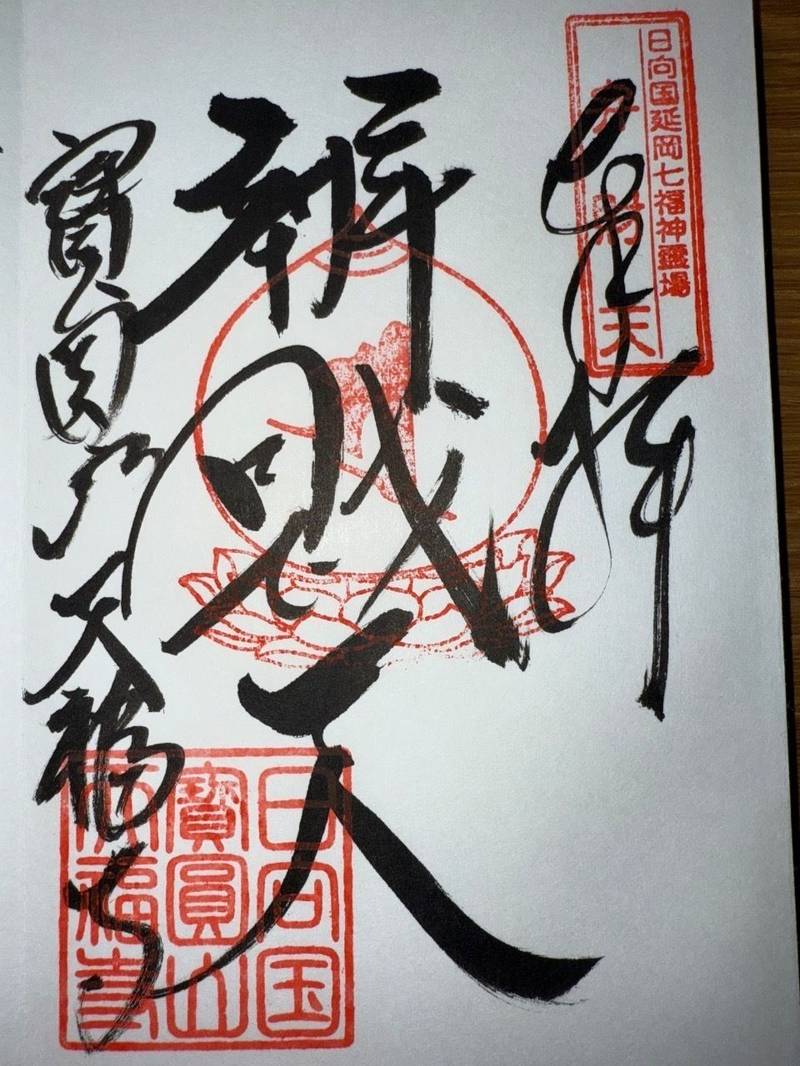 日向国延岡七福神靈場
弁財天
奉拝
辨財天
寶圓山天福寺
日向国
寶圓山
天福寺